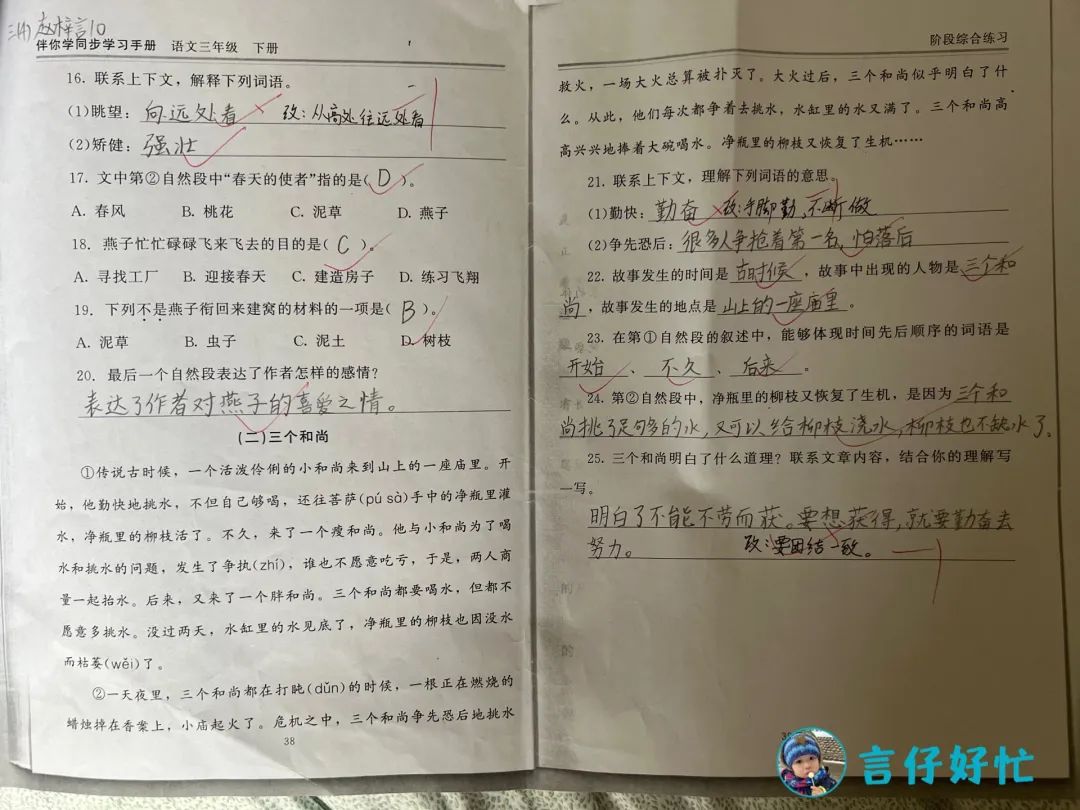 三(4) 赵梓言10
伴你学同步学习手册 语文三年级 下册
16. 联系上下文，解释下列词语。
(1)眺望：向远处看 改：从高处往远处看
(2)矫健：强壮
17. 文中第②自然段中“春天的使者”指的是( D )。
A. 春风 B. 桃花 C. 泥草 D. 燕子
18. 燕子忙忙碌碌飞来飞去的目的是( C )。
A. 寻找工厂 B. 迎接春天 C. 建造房子 D. 练习飞翔
19. 下列不是燕子衔回来建窝的材料的一项是( B )。
A. 泥草 B. 虫子 C. 泥土 D. 树枝
20. 最后一个自然段表达了作者怎样的感情？
表达了作者对燕子的喜爱之情。
(二)三个和尚
①传说古时候，一个活泼伶俐的小和尚来到山上的一座庙里。开
始，他勤快地挑水，不但自己够喝，还往菩萨(pú sà)手中的净瓶里灌
水，净瓶里的柳枝活了。不久，来了一个瘦和尚。他与小和尚为了喝
水和挑水的问题，发生了争执(zhí)，谁也不愿意吃亏，于是，两人商
量一起抬水。后来，又来了一个胖和尚。三个和尚都要喝水，但都不
愿意多挑水。没过两天，水缸里的水见底了，净瓶里的柳枝也因没水
而枯萎(wěi)了。
②一天夜里，三个和尚都在打盹(dǔn)的时候，一根正在燃烧的
蜡烛掉在香案上，小庙起火了。危机之中，三个和尚争先恐后地挑水
38
阶段综合练习
救火，一场大火总算被扑灭了。大火过后，三个和尚似乎明白了什
么。从此，他们每次都争着去挑水，水缸里的水又满了。三个和尚高
高兴兴地捧着大碗喝水。净瓶里的柳枝又恢复了生机……
21. 联系上下文，理解下列词语的意思。
(1)勤快：勤奋 改：手脚勤，不断做
(2)争先恐后：很多人争抢着第一名，怕落后
22. 故事发生的时间是古时候，故事中出现的人物是三个和
尚，故事发生的地点是山上的一座庙里。
23. 在第①自然段的叙述中，能够体现时间先后顺序的词语是
开始、不久、后来。
24. 第②自然段中，净瓶里的柳枝又恢复了生机，是因为三个和
尚挑了足够多的水，又可以给柳枝浇水，柳枝也不缺水了。
25. 三个和尚明白了什么道理？联系文章内容，结合你的理解写
一写。
明白了不能不劳而获。要想获得，就要勤奋去
努力。 改：要团结一致。
言仔好忙